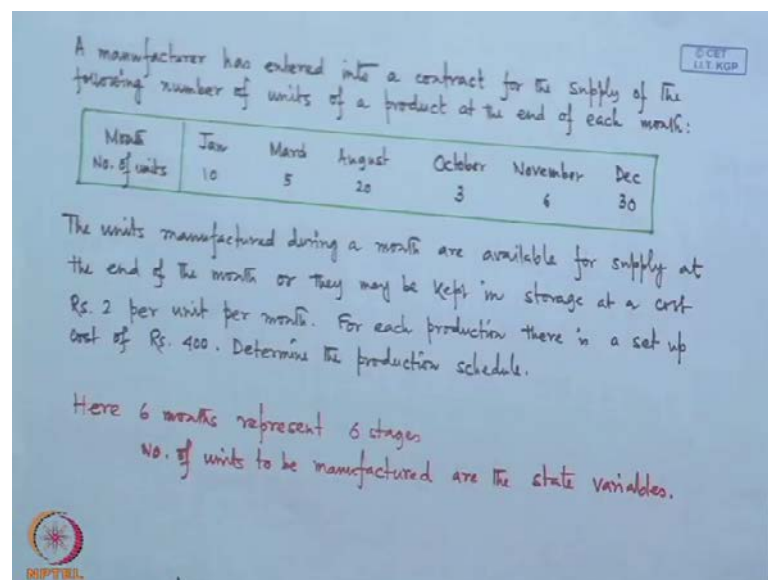 A manufacturer has entered into a contract for the supply of the
following number of units of a product at the end of each month:
© CET
I.I.T. KGP
Month Jan March August October November Dec
No. of units 10 5 20 3 6 30
The units manufactured during a month are available for supply at
the end of the month or they may be kept in storage at a cost
Rs. 2 per unit per month. For each production there is a set up
cost of Rs. 400. Determine the production schedule.
Here 6 months represent 6 stages
No. of units to be manufactured are the state variables.
NPTEL